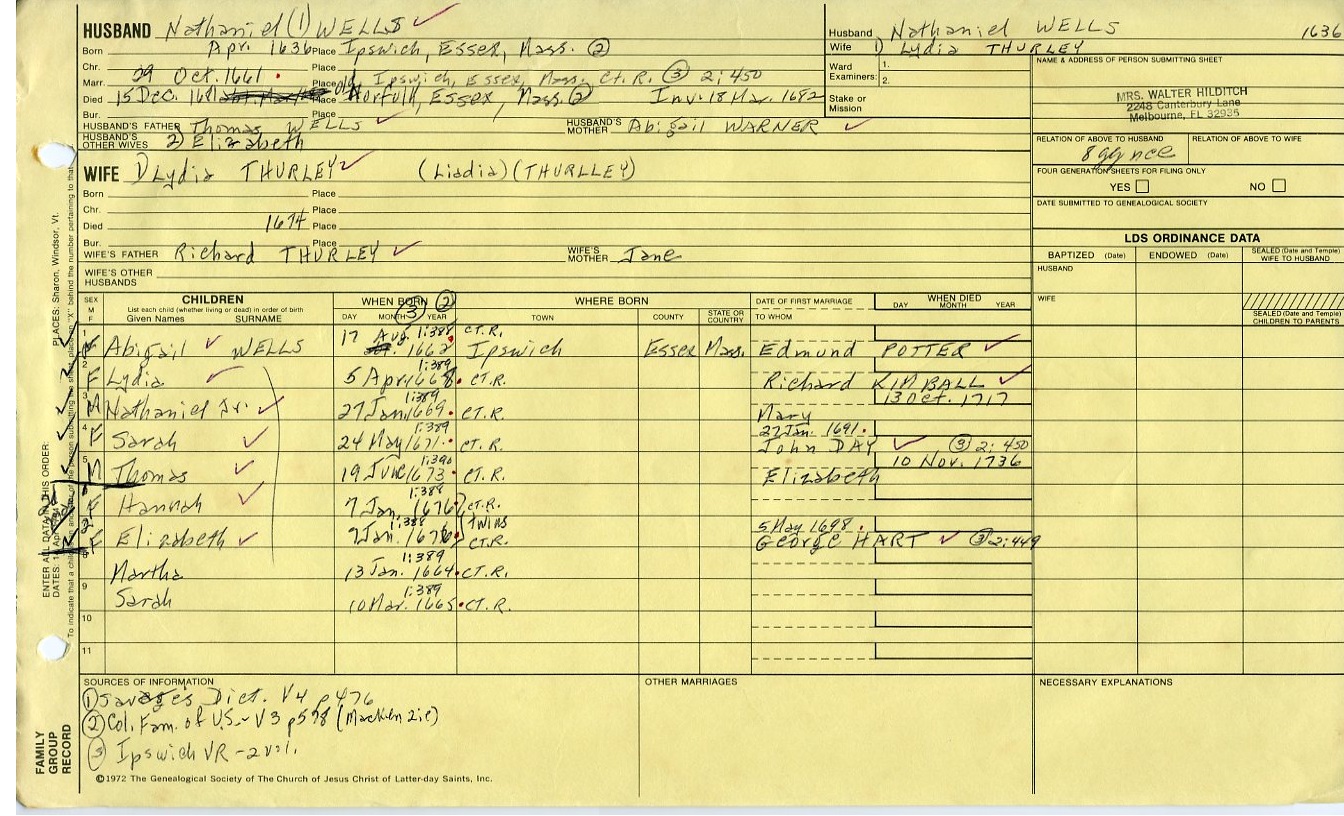 HUSBAND Nathaniel (1) WELLS
Born Apr. 1636 Place Ipswich, Essex, Mass. (2)
Chr. Place
Marr. 29 Oct. 1661 Place Ipswich, Essex, Mass. CT. R. (3) 2:450
Died 15 Dec. 1681 Place Old Norfolk, Essex, Mass. (2) Inv. 18 Mar. 1682
Bur. Place
HUSBAND'S FATHER Thomas WELLS HUSBAND'S MOTHER Abigail WARNER
HUSBAND'S OTHER WIVES 2) Elizabeth
WIFE 1) Lydia THURLEY (Liadia) (THURLLEY)
Born Place
Chr. Place
Died 1674 Place
Bur. Place
WIFE'S FATHER Richard THURLEY WIFE'S MOTHER Jane
WIFE'S OTHER HUSBANDS
Husband Nathaniel WELLS 1636
Wife 1) Lydia THURLEY
Ward Examiners: 1.
2.
Stake or Mission
NAME & ADDRESS OF PERSON SUBMITTING SHEET
MRS. WALTER HILDITCH
2248 Canterbury Lane
Melbourne, FL 32935
RELATION OF ABOVE TO HUSBAND RELATION OF ABOVE TO WIFE
8 gg nce
FOUR GENERATION SHEETS FOR FILING ONLY
YES NO
DATE SUBMITTED TO GENEALOGICAL SOCIETY
LDS ORDINANCE DATA
BAPTIZED (Date) ENDOWED (Date) SEALED (Date and Temple) WIFE TO HUSBAND
HUSBAND
WIFE
SEALED (Date and Temple) CHILDREN TO PARENTS
SEX M F
CHILDREN
List each child (whether living or dead) in order of birth
Given Names SURNAME
WHEN BORN (2) (3)
DAY MONTH YEAR
WHERE BORN
TOWN COUNTY STATE OR COUNTRY
DATE OF FIRST MARRIAGE
TO WHOM
WHEN DIED
DAY MONTH YEAR
1 F Abigail WELLS 17 Aug. 1662 1:388 CT.R. Ipswich Essex Mass. Edmund POTTER
2 F Lydia 5 Apr. 1668 1:389 CT.R. Richard KIMBALL
3 M Nathaniel Jr. 27 Jan. 1669 1:389 CT.R. Mary 13 Oct. 1717
4 F Sarah 24 May 1671 1:389 CT.R. 27 Jan. 1691 John DAY (3) 2:450
5 M Thomas 19 June 1673 1:390 CT.R. Elizabeth 10 Nov. 1736
6 F Hannah 7 Jan. 1676 1:388 CT.R.
twins
7 F Elizabeth 7 Jan. 1676 1:388 CT.R. 5 May 1698 George HART (3) 2:449
8 Martha 13 Jan. 1664 1:389 CT.R.
9 Sarah 10 Mar. 1665 1:389 CT.R.
10
11
SOURCES OF INFORMATION
(1) Savages Dict. V4 p476
(2) Col. Fam. of U.S. - V3 p578 (Mackenzie)
(3) Ipswich VR - 2 vol.
OTHER MARRIAGES
NECESSARY EXPLANATIONS
©1972 The Genealogical Society of The Church of Jesus Christ of Latter-day Saints, Inc.
FAMILY GROUP RECORD
ENTER ALL DATA IN THIS ORDER:
PLACES: Sharon, Windsor, Vt.